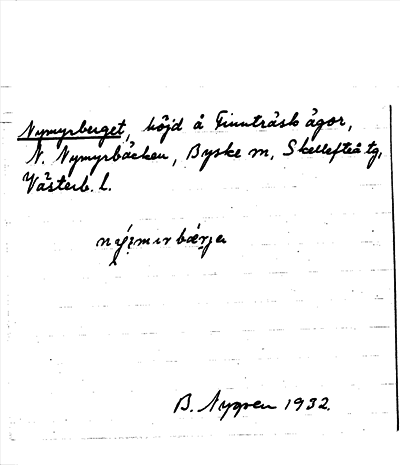 Nymyrberget, höjd å Finnträsk ägor,
N. Nymyrbäcken, Byske sn, Skellefteå tg,
Västerb. l.
B. Nygren 1932.